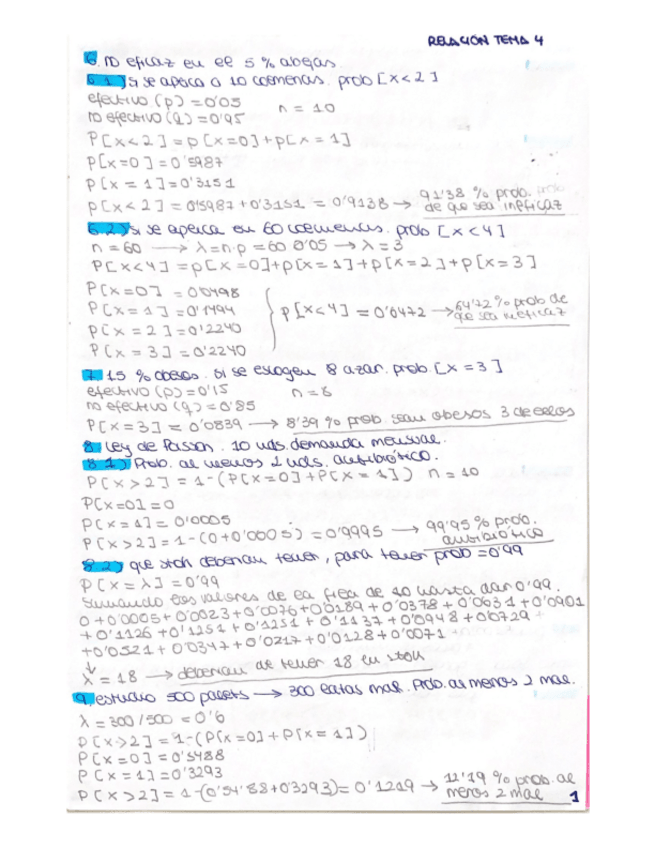 RELACIÓN TEMA 4
6. no eficaz en el 5% abejas.
6.1) Si se aplica a 10 colmenas. prob [x<2]
efectivo (p) = 0'05 n = 10
no efectivo (q) = 0'95
P[x<2] = p[x=0] + p[x=1]
P[x=0] = 0'5987
P[x=1] = 0'3151
p[x<2] = 0'5987 + 0'3151 = 0'9138 → 91'38 % prob.
de que sea ineficaz
6.2) Si se aplica en 60 colmenas. prob [x<4]
n = 60 → λ = n·p = 60 0'05 → λ = 3
P[x<4] = p[x=0] + p[x=1] + p[x=2] + p[x=3]
P[x=0] = 0'0498
P[x=1] = 0'1494
P[x=2] = 0'2240
P[x=3] = 0'2240
p[x<4] = 0'6472 → 64'72 % prob de
que sea ineficaz
7. 15 % obesos. Si se escogen 8 azar. prob. [x=3]
efectivo (p) = 0'15 n = 8
no efectivo (q) = 0'85
P[x=3] = 0'0839 → 8'39 % prob. sean obesos 3 de ellos
8. Ley de Poisson. 10 uds. demanda mensual.
8.1) Prob. al menos 2 uds. antibiótico.
P[x>2] = 1-(P[x=0] + P[x=1]) n = 10
P[x=0] = 0
P[x=1] = 0'0005
P[x>2] = 1-(0+0'0005) = 0'9995 → 99'95 % prob.
antibiótico
8.2) que stoh deberian tener, para tener prob = 0'99
P[x=λ] = 0'99
Sumando los valores de la fila de 10 hasta dar 0'99.
0+0'0005+0'0023+0'0076+0'0189+0'0378+0'0631+0'0901
+0'1126+0'1251+0'1251+0'1137+0'0948+0'0729+
+0'0521+0'0347+0'0217+0'0128+0'0071
↓
λ = 18 → deberian de tener 18 en stoh
9. estudio 500 palets → 300 latas mal. Prob. al menos 2 mal.
λ = 300/500 = 0'6
P[x>2] = 1-(P[x=0] + P[x=1])
P[x=0] = 0'5488
P[x=1] = 0'3293
P[x>2] = 1-(0'5488+0'3293) = 0'1219 → 12'19 % prob. al
menos 2 mal
1